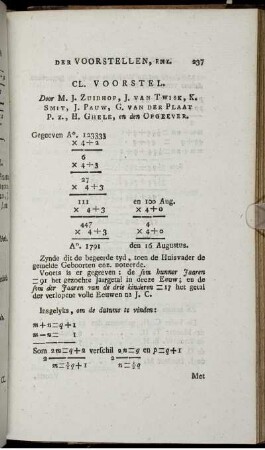 DER VOORSTELLEN, ENZ. 237
CL. VOORSTEL.
Door M. J. ZUIDHOF, J. VAN TWISK, K.
SMIT, J. PAUW, G. VAN DER PLAAT
P. Z., H. GHELE, en den OPGEEVER.
Gegeeven A°. 123333
× 4+2
6
× 4+3
27
× 4+3
111 en 100 Aug.
× 4+3 × 4+0
447 4
× 4+3 × 4+0
A°. 1791 den 16 Augustus.
Zynde dit de begeerde tyd, toen de Huisvader de
gemelde Geboorten enz. noteerde.
Voorts is er gegeven: de som hunner Jaaren
=91 het gezochte Jaargetal in deeze Eeuw; en de
som der Jaaren van de drie kinderen =17 het getal
der verlopene volle Eeuwen na J. C.
Insgelyks, om de datums te vinden:
m+n=q+1
m−n=
Som 2m=q+2 verschil 2n=q en p=q+1
2 2
m=½q+1 n=½q
Met